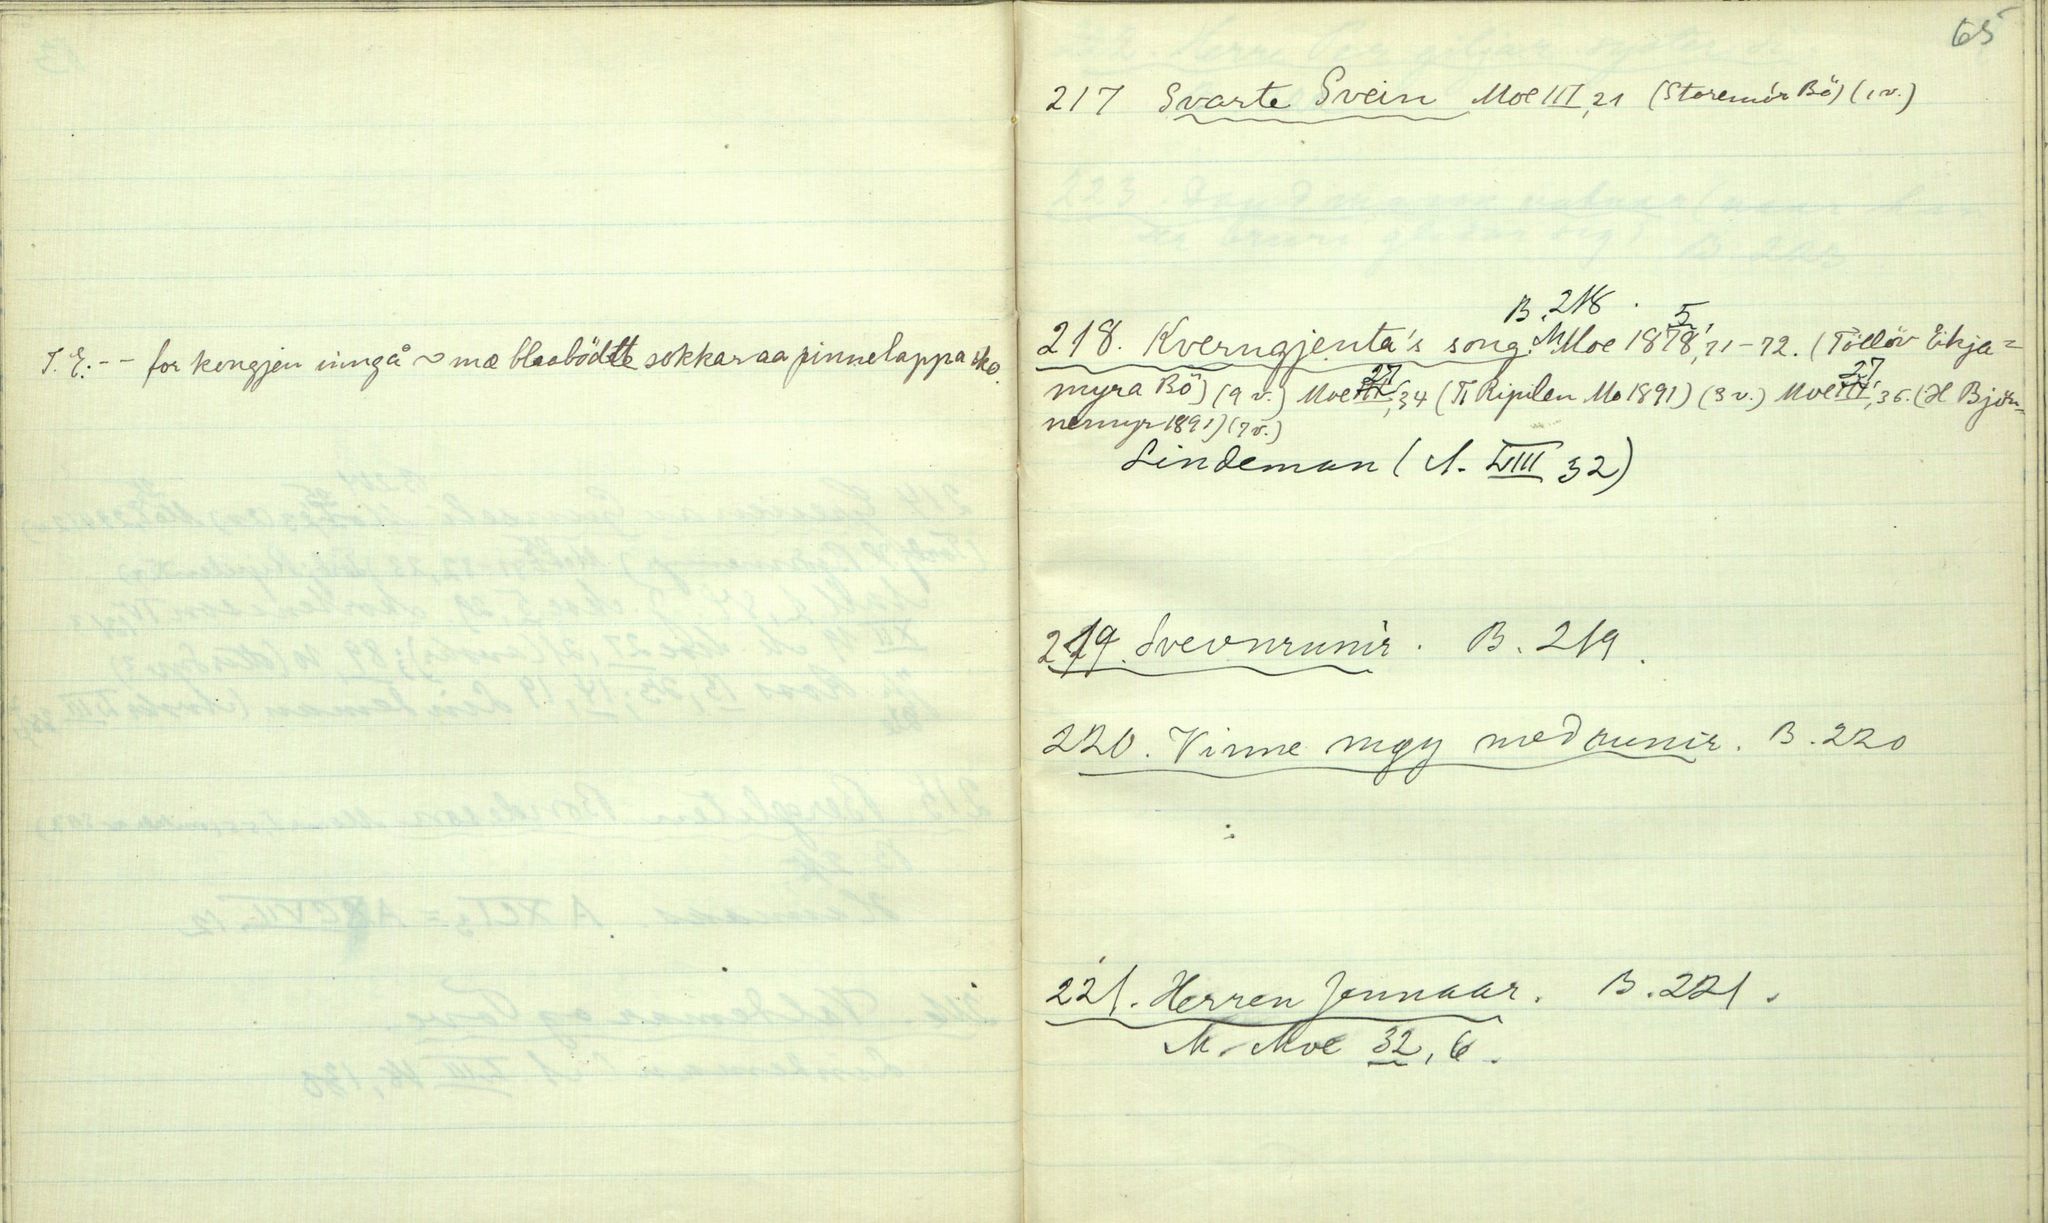 T. E. -- for kongjen inngå ~ mæ blaabödtte sokkar aa pinnelappa sko.
65
217 Svarte Svein Moe III, 21 (Storemór Bö) (1 v.)
B. 218.
218. Kverngjenta's song. M Moe 1878, 5, 71-72. (Tölløv Eikja=
myra Bö) (9 v.) Moe 27, 34 (Ripilen Mo 1891) (8 v.) Moe 27, 36. (H Björ=
nemyr 1891) (7 v.)
Lindeman (A. LIII 32)
219. Svevnrunir. B. 219.
220. Vinne møy med runir. B. 220
221. Herren Jonnaar. B. 221.
M. Moe 32, 6.